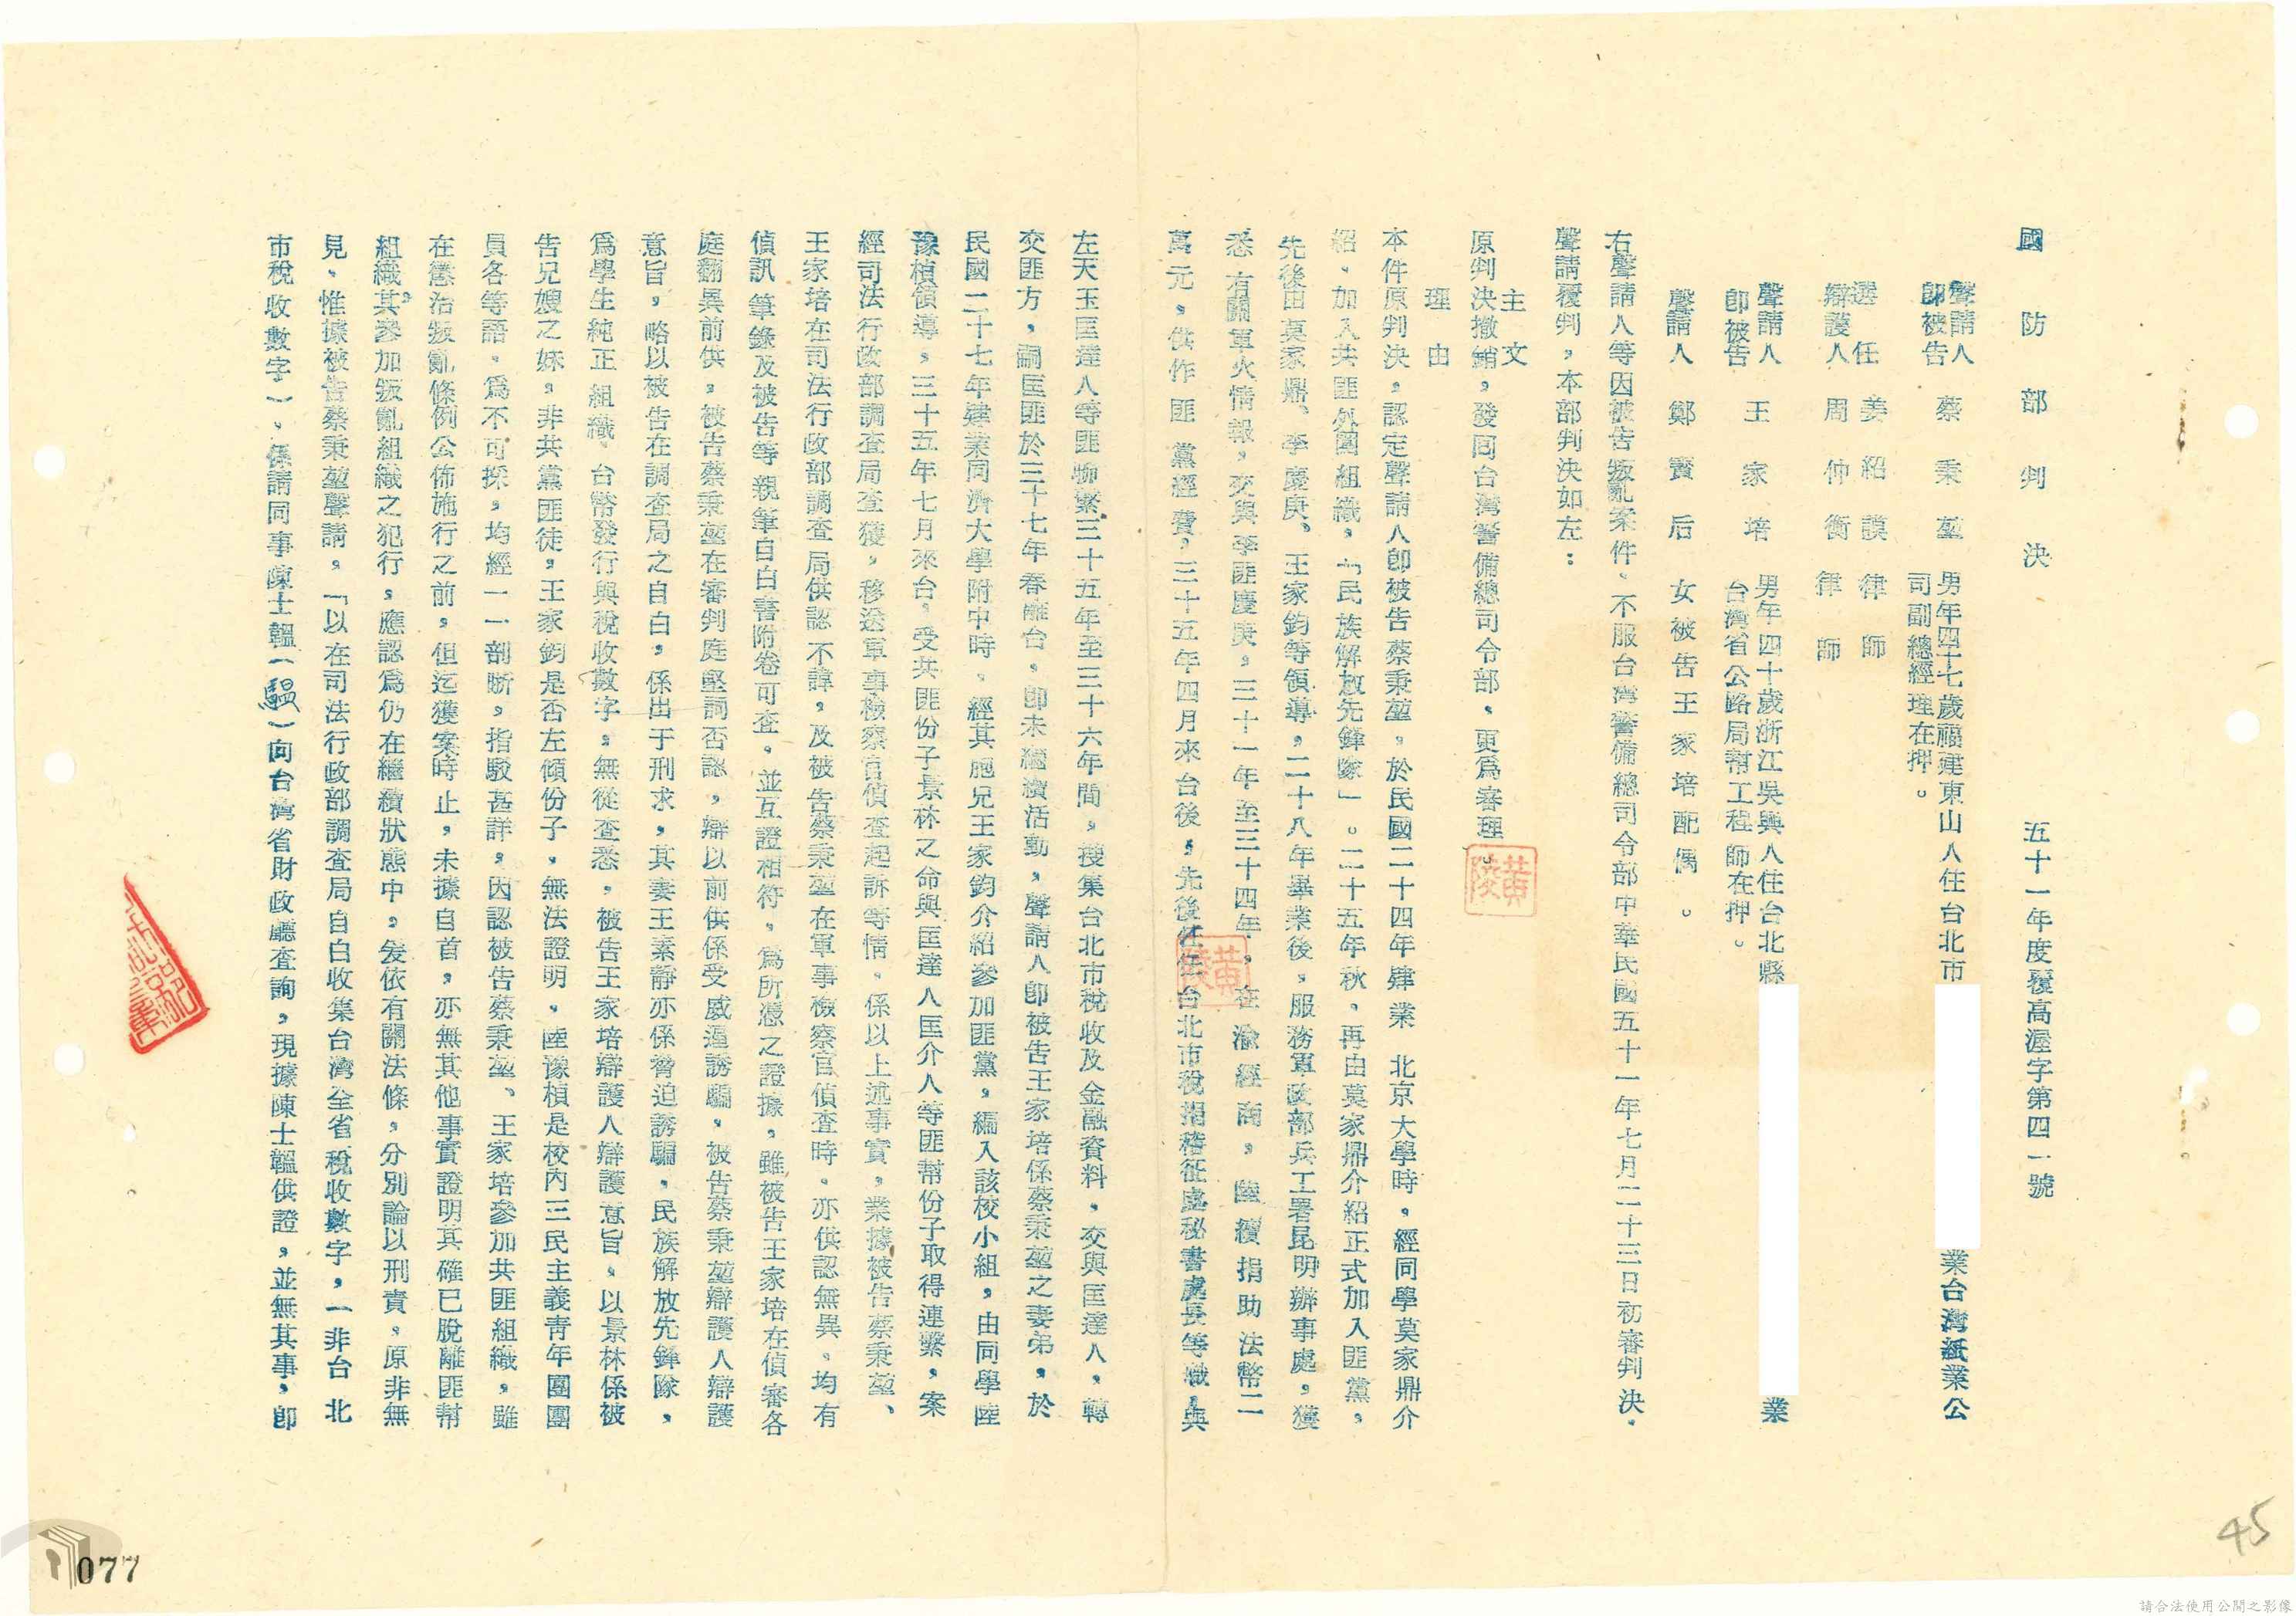 國防部判決
五十一年度覆高渥字第四一號
聲請人
即被告 蔡秉堃 男年四十七歲福建東山人住台北市 業台灣紙業公
司副總經理在押。
選任 姜紹謨 律師
辯護人 周仲衡 律師
聲請人
即被告 王家培 男年四十歲浙江吳興人住台北縣 業
台灣省公路局幫工程師在押。
聲請人 鄭寶后 女被告王家培配偶。
右聲請人等因被告叛亂案件、不服台灣警備總司令部中華民國五十一年七月二十三日初審判決.
聲請覆判，本部判決如左：
主文
原判決撤銷，發回台灣警備總司令部、更爲審理。
黃陵
理由
本件原判決，認定聲請人即被告蔡秉堃。於民國二十四年肄業 北京大學時，經同學莫家鼎介
紹、加入共匪外圍組織，「民族解放先鋒隊」。二十五年秋，再由莫家鼎介紹正式加入匪黨，
先後由莫家鼎、李慶庚、王家鈞等領導，二十八年畢業後，服務軍政部兵工署昆明辦事處，獲
悉有關軍火情報，交與李匪慶庚，三十一年至三十四年，在渝經商，陸續捐助法幣二
萬元，供作匪黨經費，三十五年四月來台後，先後任台北市稅捐稽征處秘書處長等職，與
黃陵
左天玉匡達人等匪聯繫三十五年至三十六年間，搜集台北市稅收及金融資料，交與匡達人，轉
交匪方，嗣匡匪於三十七年春離台，即未繼續活動，聲請人即被告王家培係蔡秉堃之妻弟，於
民國二十七年肄業同濟大學附中時，經其胞兄王家鈞介紹參加匪黨，編入該校小組，由同學陸
豫楨領導，三十五年七月來台，受共匪份子景林之命與匡達人匡介人等匪幫份子取得連繫，案
經司法行政部調查局查獲，移送軍事檢察官偵查起訴等情。係以上述事實，業據被告蔡秉堃、
王家培在司法行政部調查局供認不諱，及被告蔡秉堃在軍事檢察官偵查時。亦供認無異，均有
偵訊筆錄及被告等親筆自白書附卷可查。並互證相符，爲所憑之證據，雖被告王家培在偵審各
庭翻異前供，被告蔡秉堃在審判庭堅詞否認，辯以前供係受威逼誘騙，被告蔡秉堃辯護人辯護
意旨，略以被告在調查局之自白，係出于刑求，其妻王素靜亦係脅迫誘騙，民族解放先鋒隊，
爲學生純正組織、台幣發行與稅收數字，無從查悉，被告王家培辯護人辯護意旨，以景林係被
告兄嫂之妹，非共黨匪徒，王家鈞是否左傾份子，無法證明，陸豫楨是校內三民主義青年團團
員各等語，爲不可採，均經一一剖晰，指駁甚詳，因認被告蔡秉堃、王家培參加共匪組織，雖
在懲治叛亂條例公佈施行之前，但迄獲案時止，未據自首，亦無其他事實證明其確已脫離匪幫
組織其參加叛亂組織之犯行，應認爲仍在繼續狀態中，爰依有關法條，分別論以刑責，原非無
見、惟據被告蔡秉堃聲請。「以在司法行政部調查局自白收集台灣全省稅收數字，一非台北
市稅收數字）、係請同事陳士韞（韞）向台灣省財政廳查詢，現據陳士韞供證，並無其事，即
077
45
請合法使用公開之影像